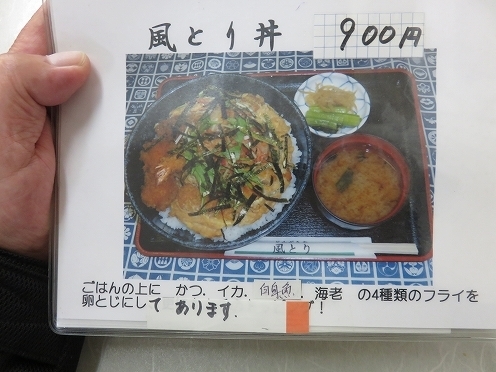 風とり丼 900円
風とり
ごはんの上に かつ、イカ、白身魚、海老 の4種類のフライを
卵とじにして あります. !